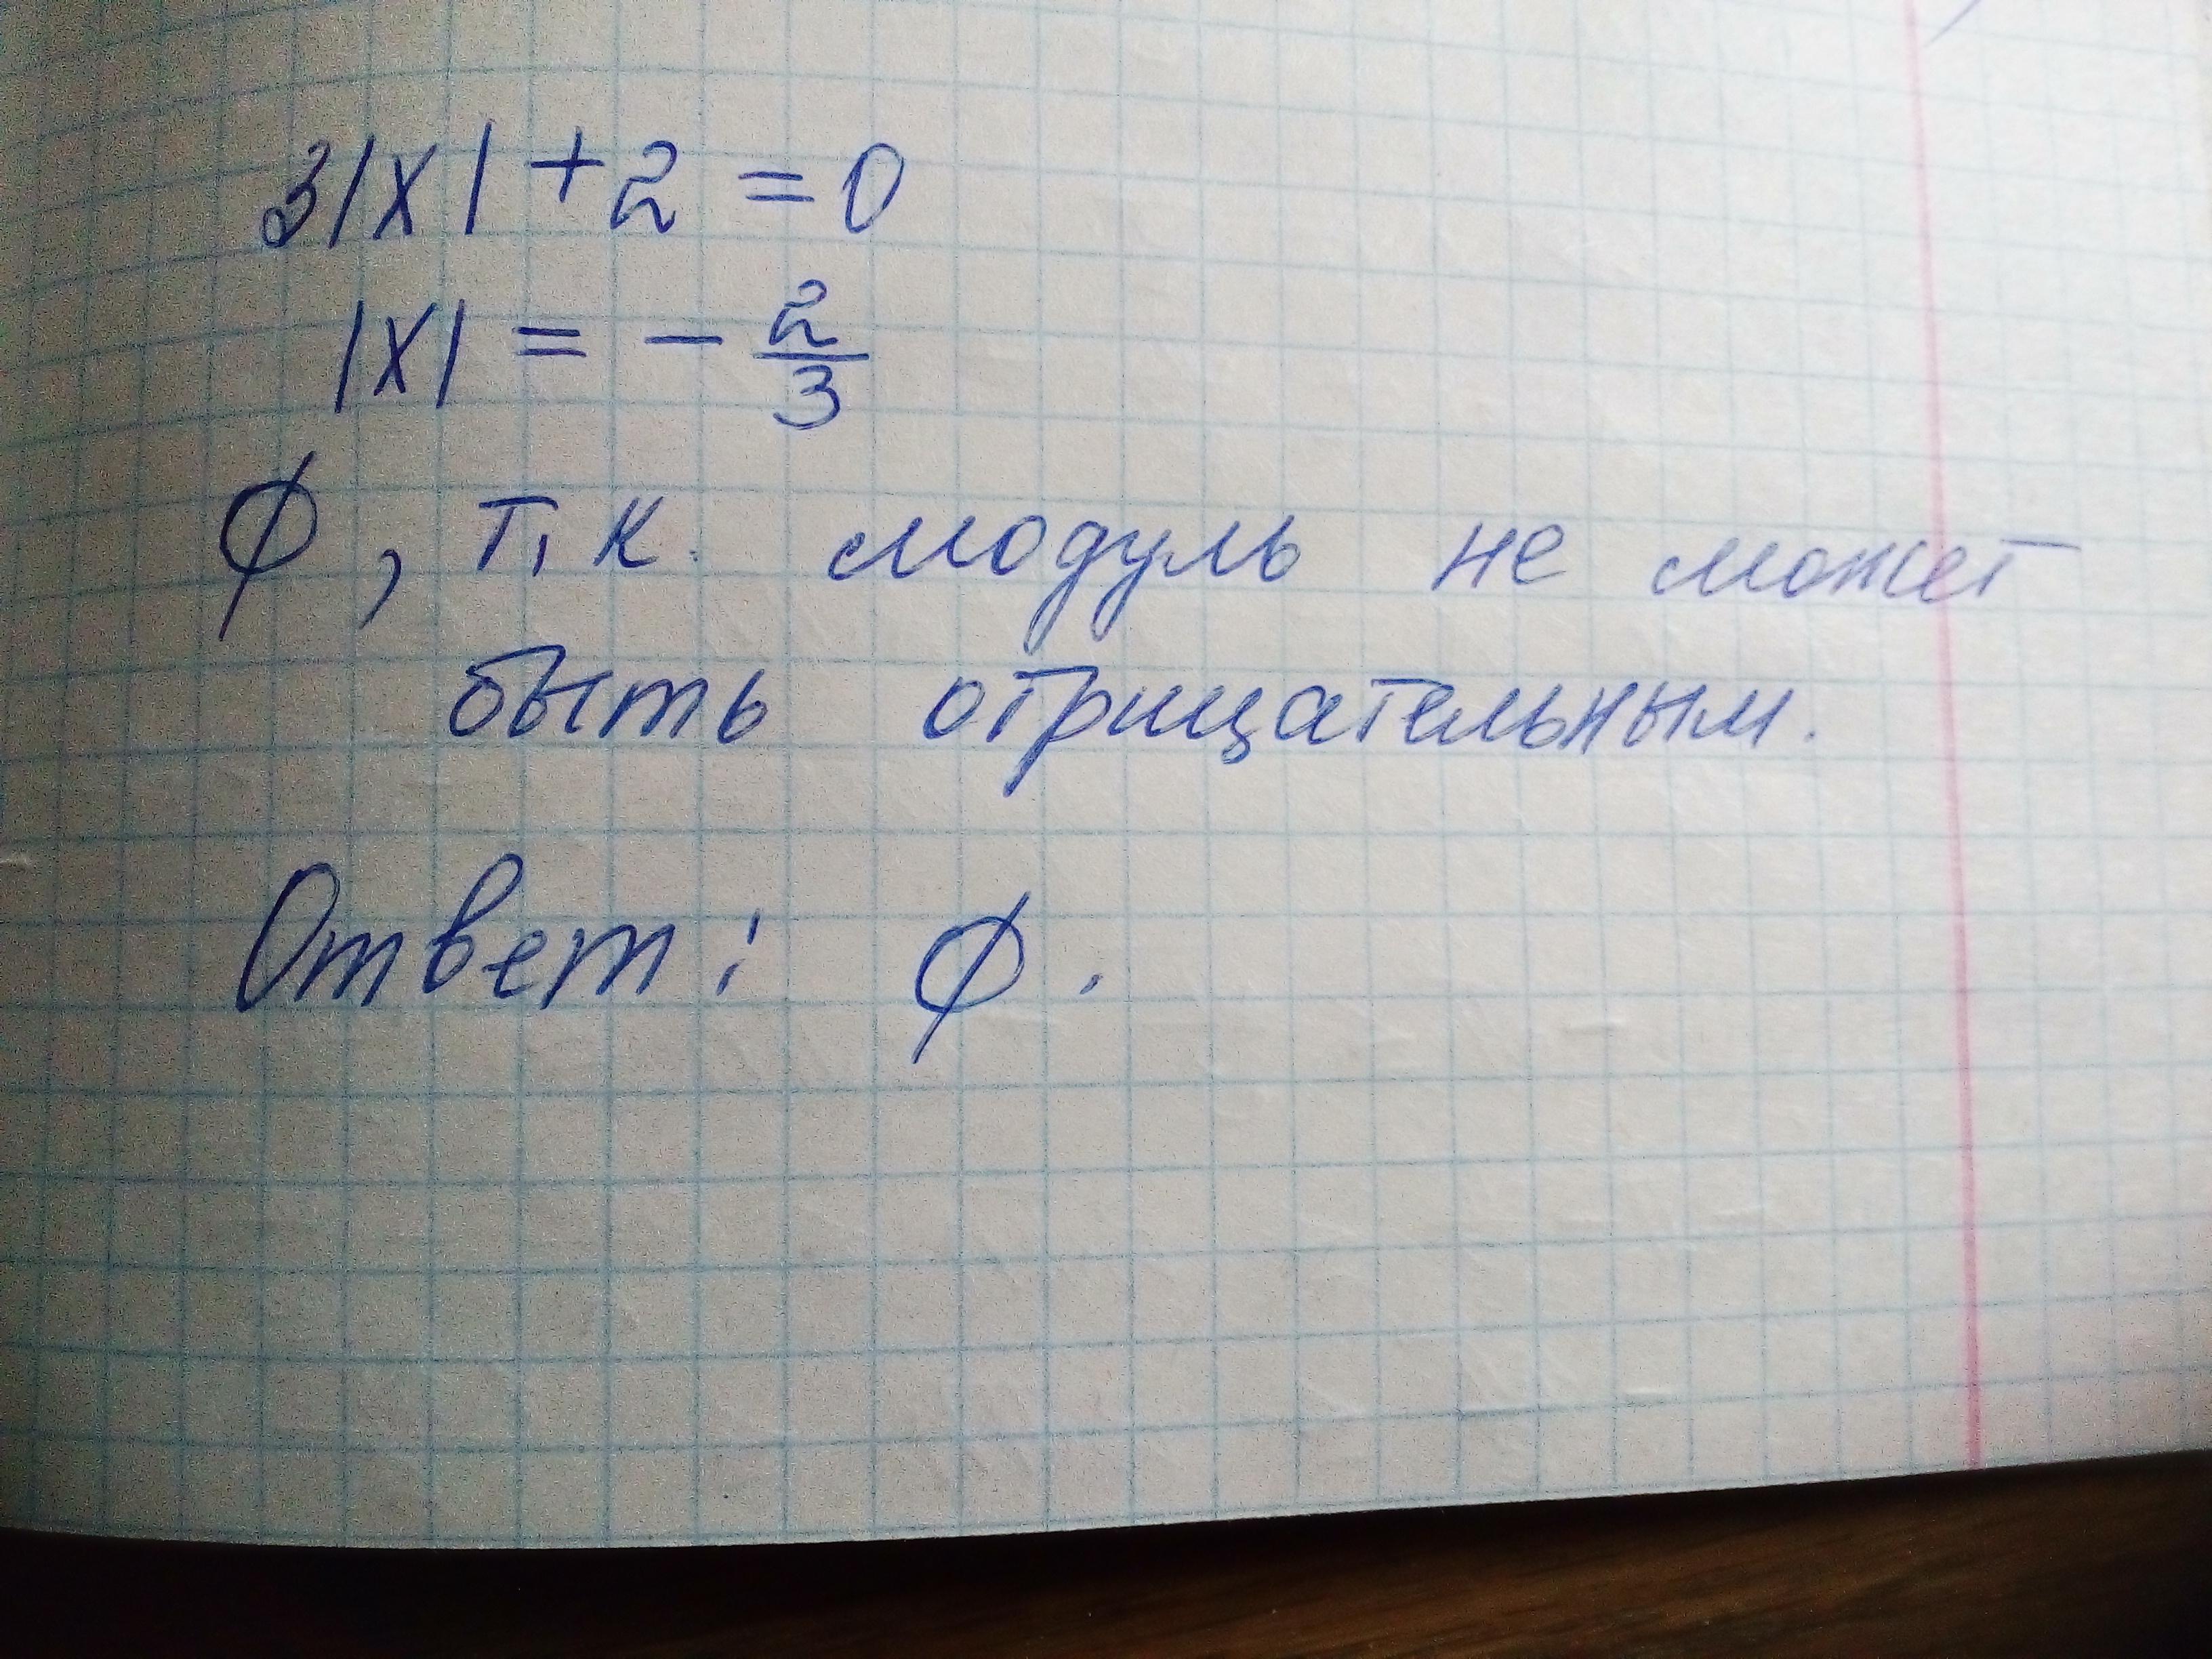 3|x| + 2 = 0
|x| = - 2/3
∅, т.к. модуль не может
быть отрицательным.
Ответ: ∅.